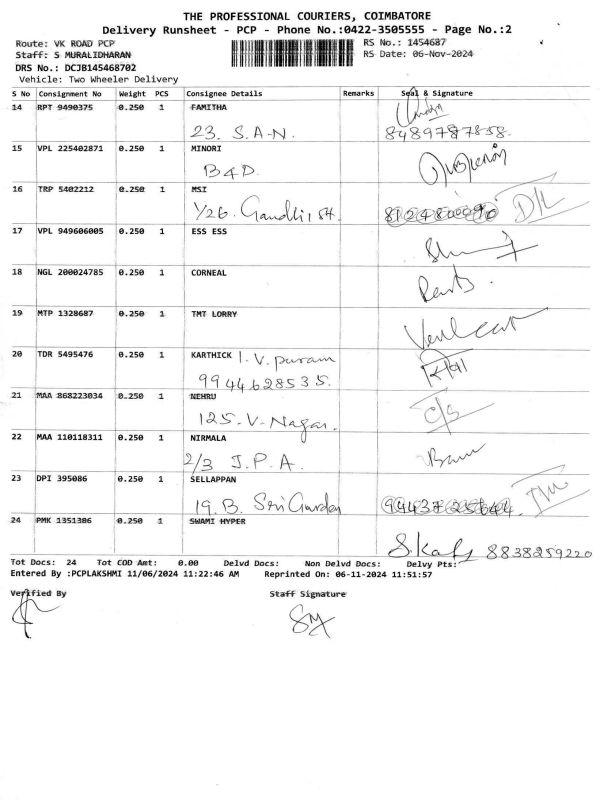 THE PROFESSIONAL COURIERS, COIMBATORE
Delivery Runsheet - PCP - Phone No.:0422-3505555 - Page No.:2
Route: VK ROAD PCP RS No.: 1454687
Staff: S MURALIDHARAN RS Date: 06-Nov-2024
DRS No.: DCJB145468702
Vehicle: Two Wheeler Delivery
S No Consignment No Weight PCS Consignee Details Remarks Seal & Signature
14 RPT 9490375 0.250 1 FAMITHA
23. S.A-N. 8489787858.
15 VPL 225402871 0.250 1 MINORI
B4D.
16 TRP 5402212 0.250 1 MSI
1/26. Gandhi, st. D/L
17 VPL 949606005 0.250 1 ESS ESS
18 NGL 200024785 0.250 1 CORNEAL
19 MTP 1328687 0.250 1 TMT LORRY
20 TDR 5495476 0.250 1 KARTHICK I. V. puram
9944628535.
21 MAA 868223034 0.250 1 NEHRU
125. V. Nagar. C/S
22 MAA 110118311 0.250 1 NIRMALA
2/3 J.P.A.
23 DPI 395086 0.250 1 SELLAPPAN
19. B. Sri Garden
24 PMK 1351386 0.250 1 SWAMI HYPER
8838259220
Tot Docs: 24 Tot COD Amt: 0.00 Delvd Docs: Non Delvd Docs: Delvy Pts:
Entered By :PCPLAKSHMI 11/06/2024 11:22:46 AM Reprinted On: 06-11-2024 11:51:57
Verified By Staff Signature